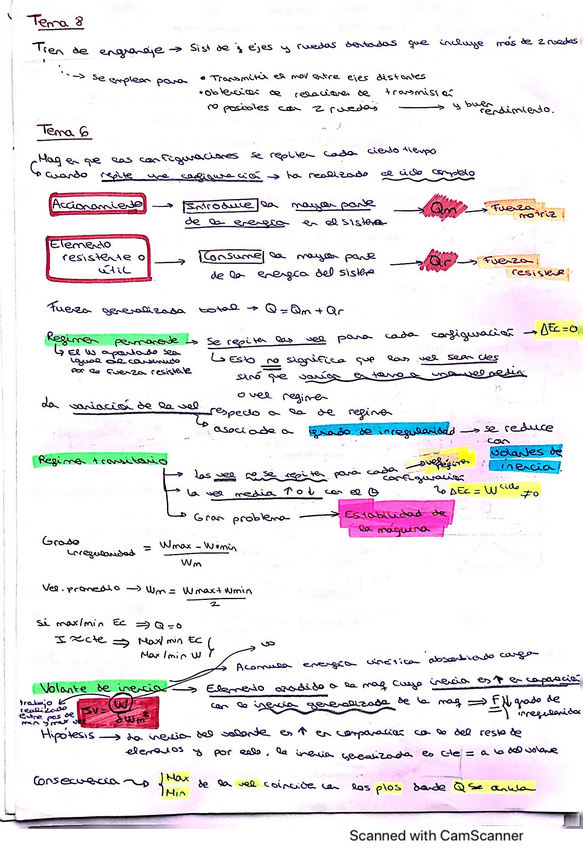 Tema 8
Tren de engranaje → Sist de ejes y ruedas dentadas que incluye más de 2 ruedas
→ Se emplean para • Transmitir el mov entre ejes distantes
• obtención de relaciones de transmisión
no posibles con 2 ruedas → y buen rendimiento.
Tema 6
Maq en que las configuraciones se repiten cada cierto tiempo
Cuando repite una configuración → ha realizado el ciclo completo
Accionamiento → Introduce la mayor parte de la energía en el sistema → Qm → Fuerza motriz
Elemento resistente o útil → Consume la mayor parte de la energía del sistema → Qr → Fuerza resistente
Fuerza generalizada total → Q = Qm + Qr
Regimen permanente → Se repiten las vel para cada configuración → ΔEc=0
↳ El W aportado sea igual al consumido por la fuerza resistente
↳ Esto no significa que las vel sean ctes
sino que varían en torno a una vel media
o vel regimen
La variación de la vel respecto a la de regimen
↳ asociada a grado de irregularidad → se reduce con volantes de inercia
Regimen transitorio
→ Las vel no se repiten para cada configuración
→ la vel media ↑ o ↓ con el
↳ ΔEc = W ciclo ≠0
→ Gran problema → Estabilidad de la máquina
Grado irregularidad = Wmax - Wmin / Wm
Vel. promedio → Wm = Wmax + Wmin / 2
Si max/min Ec ⇒ Q=0
I ≈ cte ⇒ Max/min Ec
Max/min W
Acumula energía cinética absorbiendo carga
Volante de inercia → Elemento añadido a la maq cuya inercia es ↑ en comparación
con la inercia generalizada de la maq ⇒ ↓ grado de irregularidad
trabajo realizado entre pos de min y max vel
Hipótesis → La inercia del volante es ↑ en comparación con la del resto de
elementos y por ello, la inercia generalizada es cte = a la del volante
Consecuencia → Max Min de la vel coincide con los ptos donde Q se anula
Scanned with CamScanner